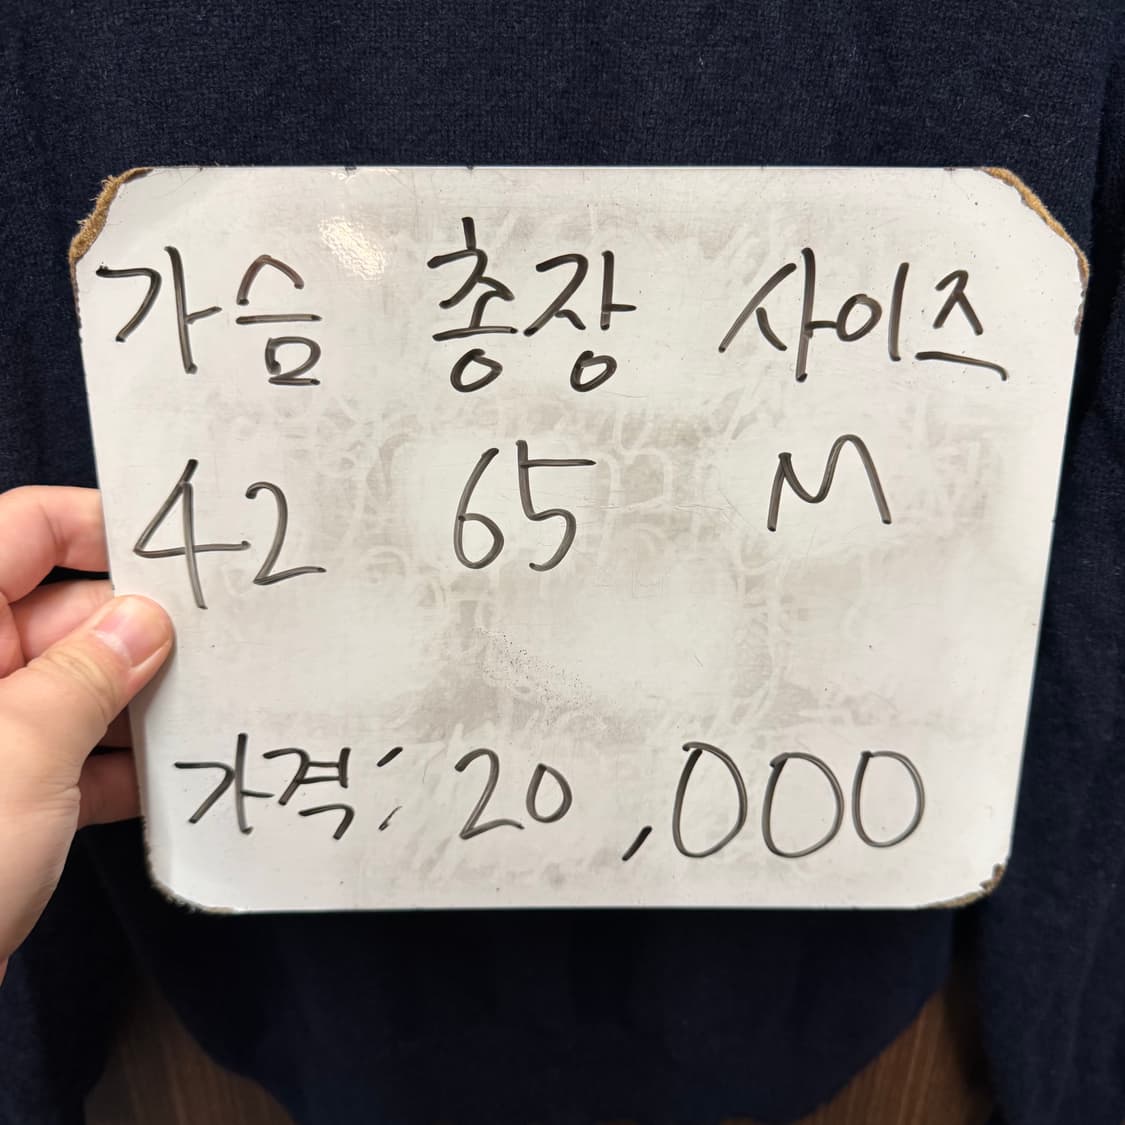 가슴 총장 사이즈
42 65 M
가격: 20,000